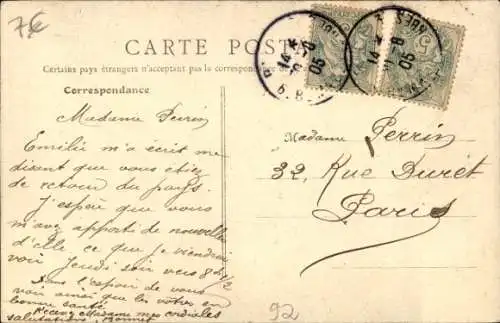 7€
CARTE POSTALE
Certains pays étrangers n'acceptant pas la correspondance
Correspondance
14 8 05
14 8 05
Madame Perrin
Emilie m'a écrit me
disant que vous étiez
de retour du pays.
J'espère que vous
m'avez apporté de nouvelles
d'elle ce que je viendrai
voir Jeudi soir vers 8h 1/2
Dans l'espoir de vous
voir ainsi que les votres en
bonne santé
Recevez Madame mes cordiales
salutations
Madame Perrin
32, Rue Duret
Paris
92